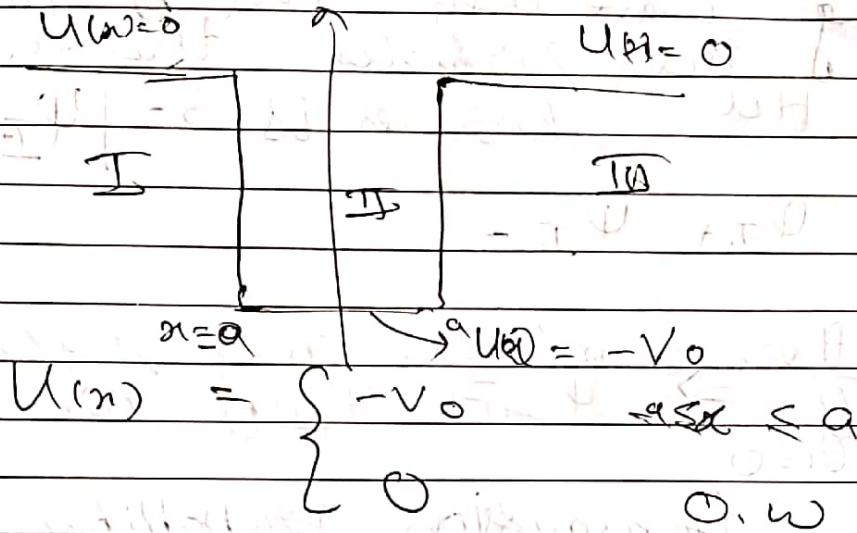 U(x)=0 U(x)=0
I II III
x=a a U(x) = -V0
U(x) = { -V0 -a≤x ≤ a
0 O.W